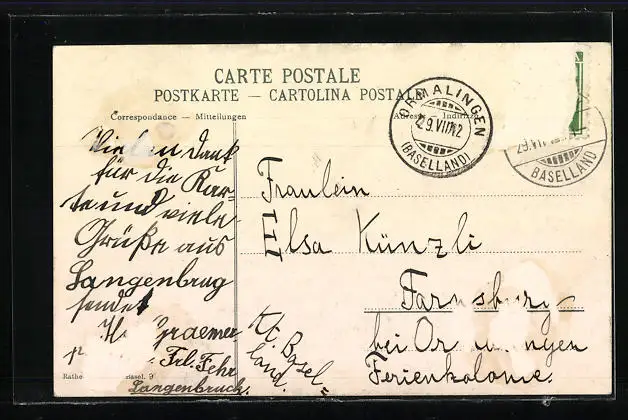 CARTE POSTALE
POSTKARTE — CARTOLINA POSTALE
Correspondance — Mitteilungen
Adresse — Indirizzo
ORMALINGEN
29.VII.12
(BASELLAND)
BASELLAND
Vielen Dank
für die Kar-
te und viele
Grüße aus
Langenbrug
sendet
H. Graemer
Frl. Fehr
Langenbruck.
Fräulein
Elsa Künzli
Farnsburg
bei Or
Ferienkolonie.
Kt. Basel=
land.
Rathe